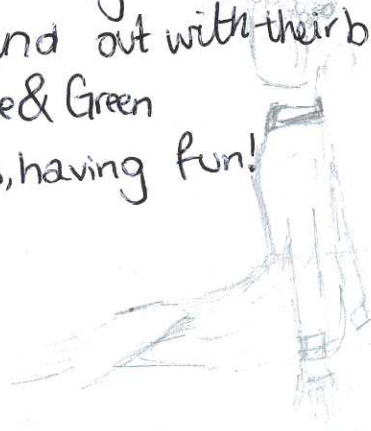 nd out with their b
e & Green
, having fun!